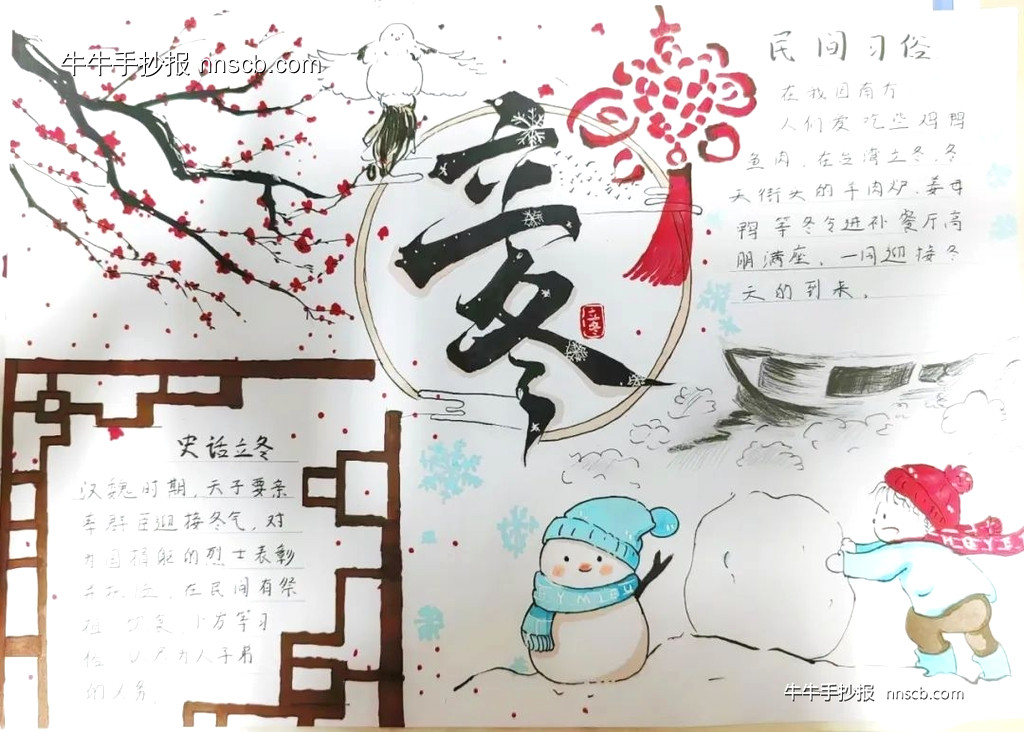 牛牛手抄报 nnscb.com
立冬
立冬
民间习俗
在我国南方
人们爱吃些鸡鸭
鱼肉，在台湾立冬，冬
天街头的羊肉炉、姜母
鸭等冬令进补餐厅高
朋满座，一同迎接冬
天的到来。
史话立冬
汉魏时期，天子要亲
率群臣迎接冬气，对
为国捐躯的烈士表彰
在民间有祭
祖
牛牛手抄报 nnscb.com